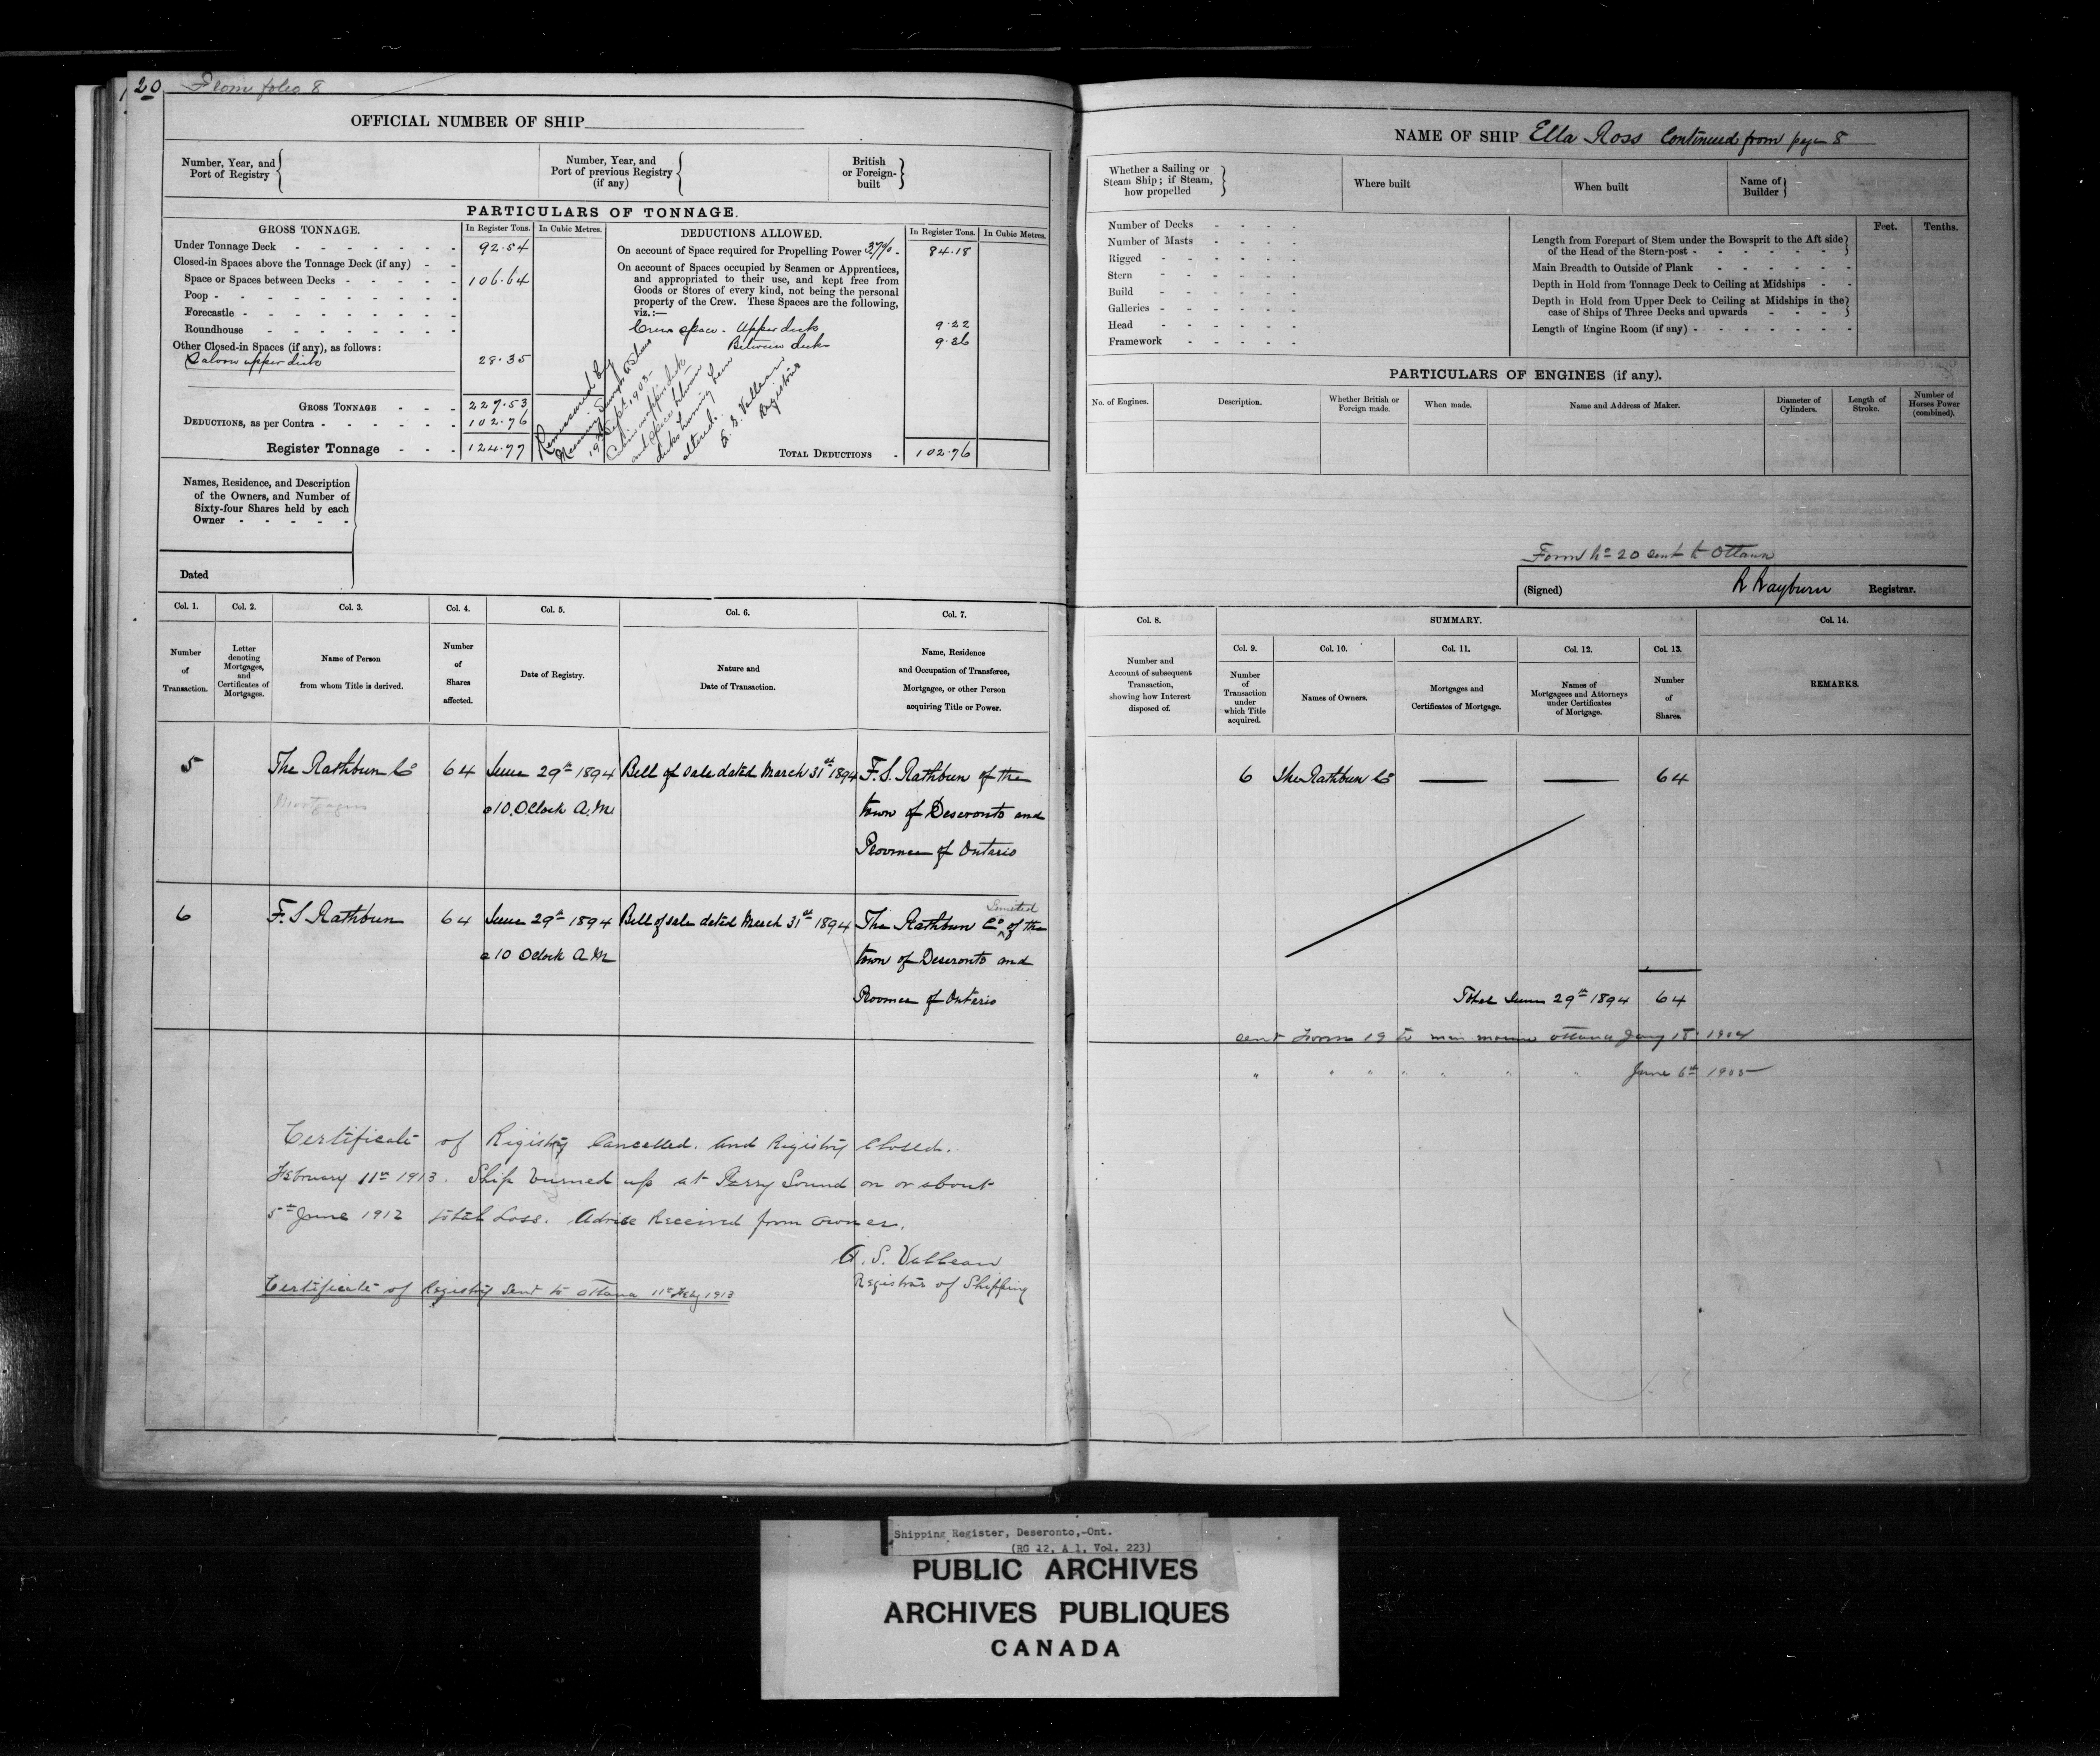 20 From folio 8
OFFICIAL NUMBER OF SHIP
Number, Year, and
Port of Registry
Number, Year, and
Port of previous Registry
(if any)
British
or Foreign-
built
PARTICULARS OF TONNAGE.
GROSS TONNAGE. In Register Tons. In Cubic Metres.
Under Tonnage Deck 92.54
Closed-in Spaces above the Tonnage Deck (if any)
Space or Spaces between Decks 106.64
Poop
Forecastle
Roundhouse
Other Closed-in Spaces (if any), as follows:
Saloon upper deck 28.35
GROSS TONNAGE 227.53
DEDUCTIONS, as per Contra 102.76
Register Tonnage 124.77
DEDUCTIONS ALLOWED. In Register Tons. In Cubic Metres.
On account of Space required for Propelling Power 37% 84.18
On account of Spaces occupied by Seamen or Apprentices,
and appropriated to their use, and kept free from
Goods or Stores of every kind, not being the personal
property of the Crew. These Spaces are the following,
viz.:—
Crew space - Upper deck 9.22
Between decks 9.36
Remeasured by
19th Sept 1903
Cabin on upper deck
and space between
decks having been
altered.
A. S. Vallean
Registrar
TOTAL DEDUCTIONS 102.76
Names, Residence, and Description
of the Owners, and Number of
Sixty-four Shares held by each
Owner
Dated
Col. 1. Col. 2. Col. 3. Col. 4. Col. 5. Col. 6. Col. 7.
Number
of
Transaction.
Letter
denoting
Mortgages,
and
Certificates of
Mortgages.
Name of Person
from whom Title is derived.
Number
of
Shares
affected.
Date of Registry.
Nature and
Date of Transaction.
Name, Residence
and Occupation of Transferee,
Mortgagee, or other Person
acquiring Title or Power.
5 The Rathbun Co 64 June 29th 1894 Bill of Sale dated March 31st 1894 F. S. Rathbun of the
Mortgages @ 10 OClock A.M. town of Deseronto and
Province of Ontario
6 F. S Rathbun 64 June 29th 1894 Bill of sale dated March 31st 1894 The Rathbun Co Limited of the
@ 10 Oclock A.M town of Deseronto and
Province of Ontario
Certificate of Registry Cancelled. and Registry Closed.
February 11th 1913. Ship burned up at Parry Sound on or about
5th June 1912 total Loss. Advice Received from owner.
A. S. Vallean
Registrar of Shipping
Certificate of Registry sent to Ottawa 11th Feby 1913
NAME OF SHIP Ella Ross Continued from page 8
Whether a Sailing or
Steam Ship; if Steam,
how propelled
Where built
When built
Name of
Builder
Number of Decks
Number of Masts
Rigged
Stern
Build
Galleries
Head
Framework
Feet. Tenths.
Length from Forepart of Stem under the Bowsprit to the Aft side
of the Head of the Stern-post
Main Breadth to Outside of Plank
Depth in Hold from Tonnage Deck to Ceiling at Midships
Depth in Hold from Upper Deck to Ceiling at Midships in the
case of Ships of Three Decks and upwards
Length of Engine Room (if any)
PARTICULARS OF ENGINES (if any).
No. of Engines.
Description.
Whether British or
Foreign made.
When made.
Name and Address of Maker.
Diameter of
Cylinders.
Length of
Stroke.
Number of
Horses Power
(combined).
Form No 20 sent to Ottawa
(Signed) R Rayburn Registrar.
Col. 8. SUMMARY. Col. 14.
Col. 9. Col. 10. Col. 11. Col. 12. Col. 13.
Number and
Account of subsequent
Transaction,
showing how Interest
disposed of.
Number
of
Transaction
under
which Title
acquired.
Names of Owners.
Mortgages and
Certificates of Mortgage.
Names of
Mortgagees and Attorneys
under Certificates
of Mortgage.
Number
of
Shares.
REMARKS.
6 The Rathbun Co — — 64
Total June 29th 1894 64
sent Form 19 to min marine ottawa Jany 15 1904
" " " " " " " June 6th 1905
Shipping Register, Deseronto,-Ont.
(RG 12, A 1, Vol. 223)
PUBLIC ARCHIVES
ARCHIVES PUBLIQUES
CANADA